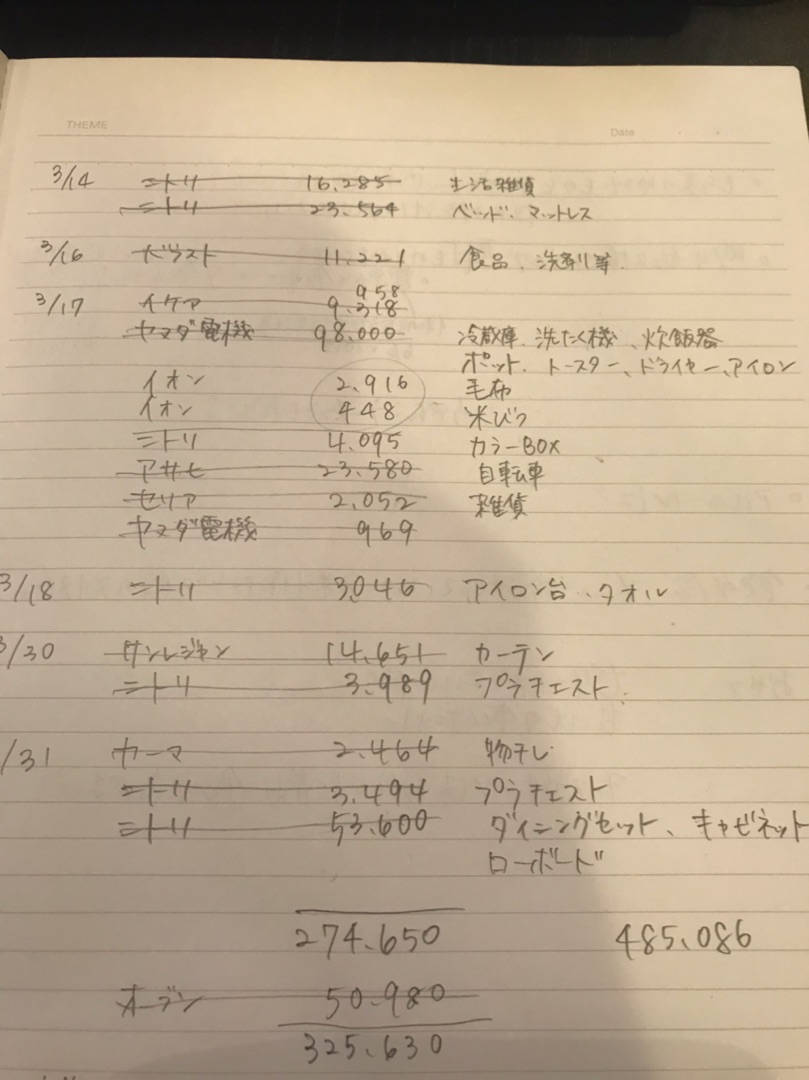 THEME
Date
3/14 ニトリ 16.285 生活雑貨
ニトリ 23.564 ベッド、マットレス
3/16 ドラスト 11.221 食品、洗剤等
958
3/17 イケア 9.318
ヤマダ電機 98.000 冷蔵庫、洗たく機、炊飯器
ポット、トースター、ドライヤー、アイロン
イオン 2.916 毛布
イオン 448 米びつ
ニトリ 4.095 カラーBOX
アサヒ 23.580 自転車
セリア 2.052 雑貨
ヤマダ電機 969
3/18 ニトリ 3.046 アイロン台、タオル
3/30 サンレジャン 14.651 カーテン
ニトリ 3.989 プラチェスト
/31 カーマ 2.464 物干し
ニトリ 3.494 プラチェスト
ニトリ 53.600 ダイニングセット、キャビネット
ローボード
274.650 485.086
オーブン 50.980
325.630